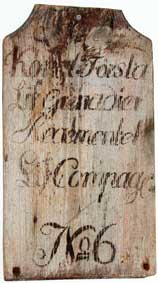 Kongl Första
Lif Grenadier
Regementet
Lif Compag
No 6